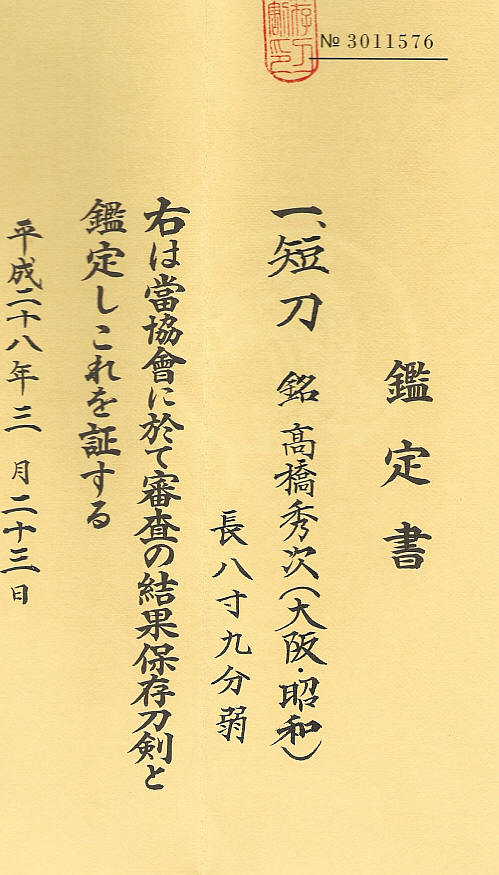 № 3011576
鑑定書
一、短刀 銘 高橋秀次(大阪・昭和)
長八寸九分弱
右は當協會に於て審査の結果保存刀剣と
鑑定しこれを証する
平成二十八年三月二十三日